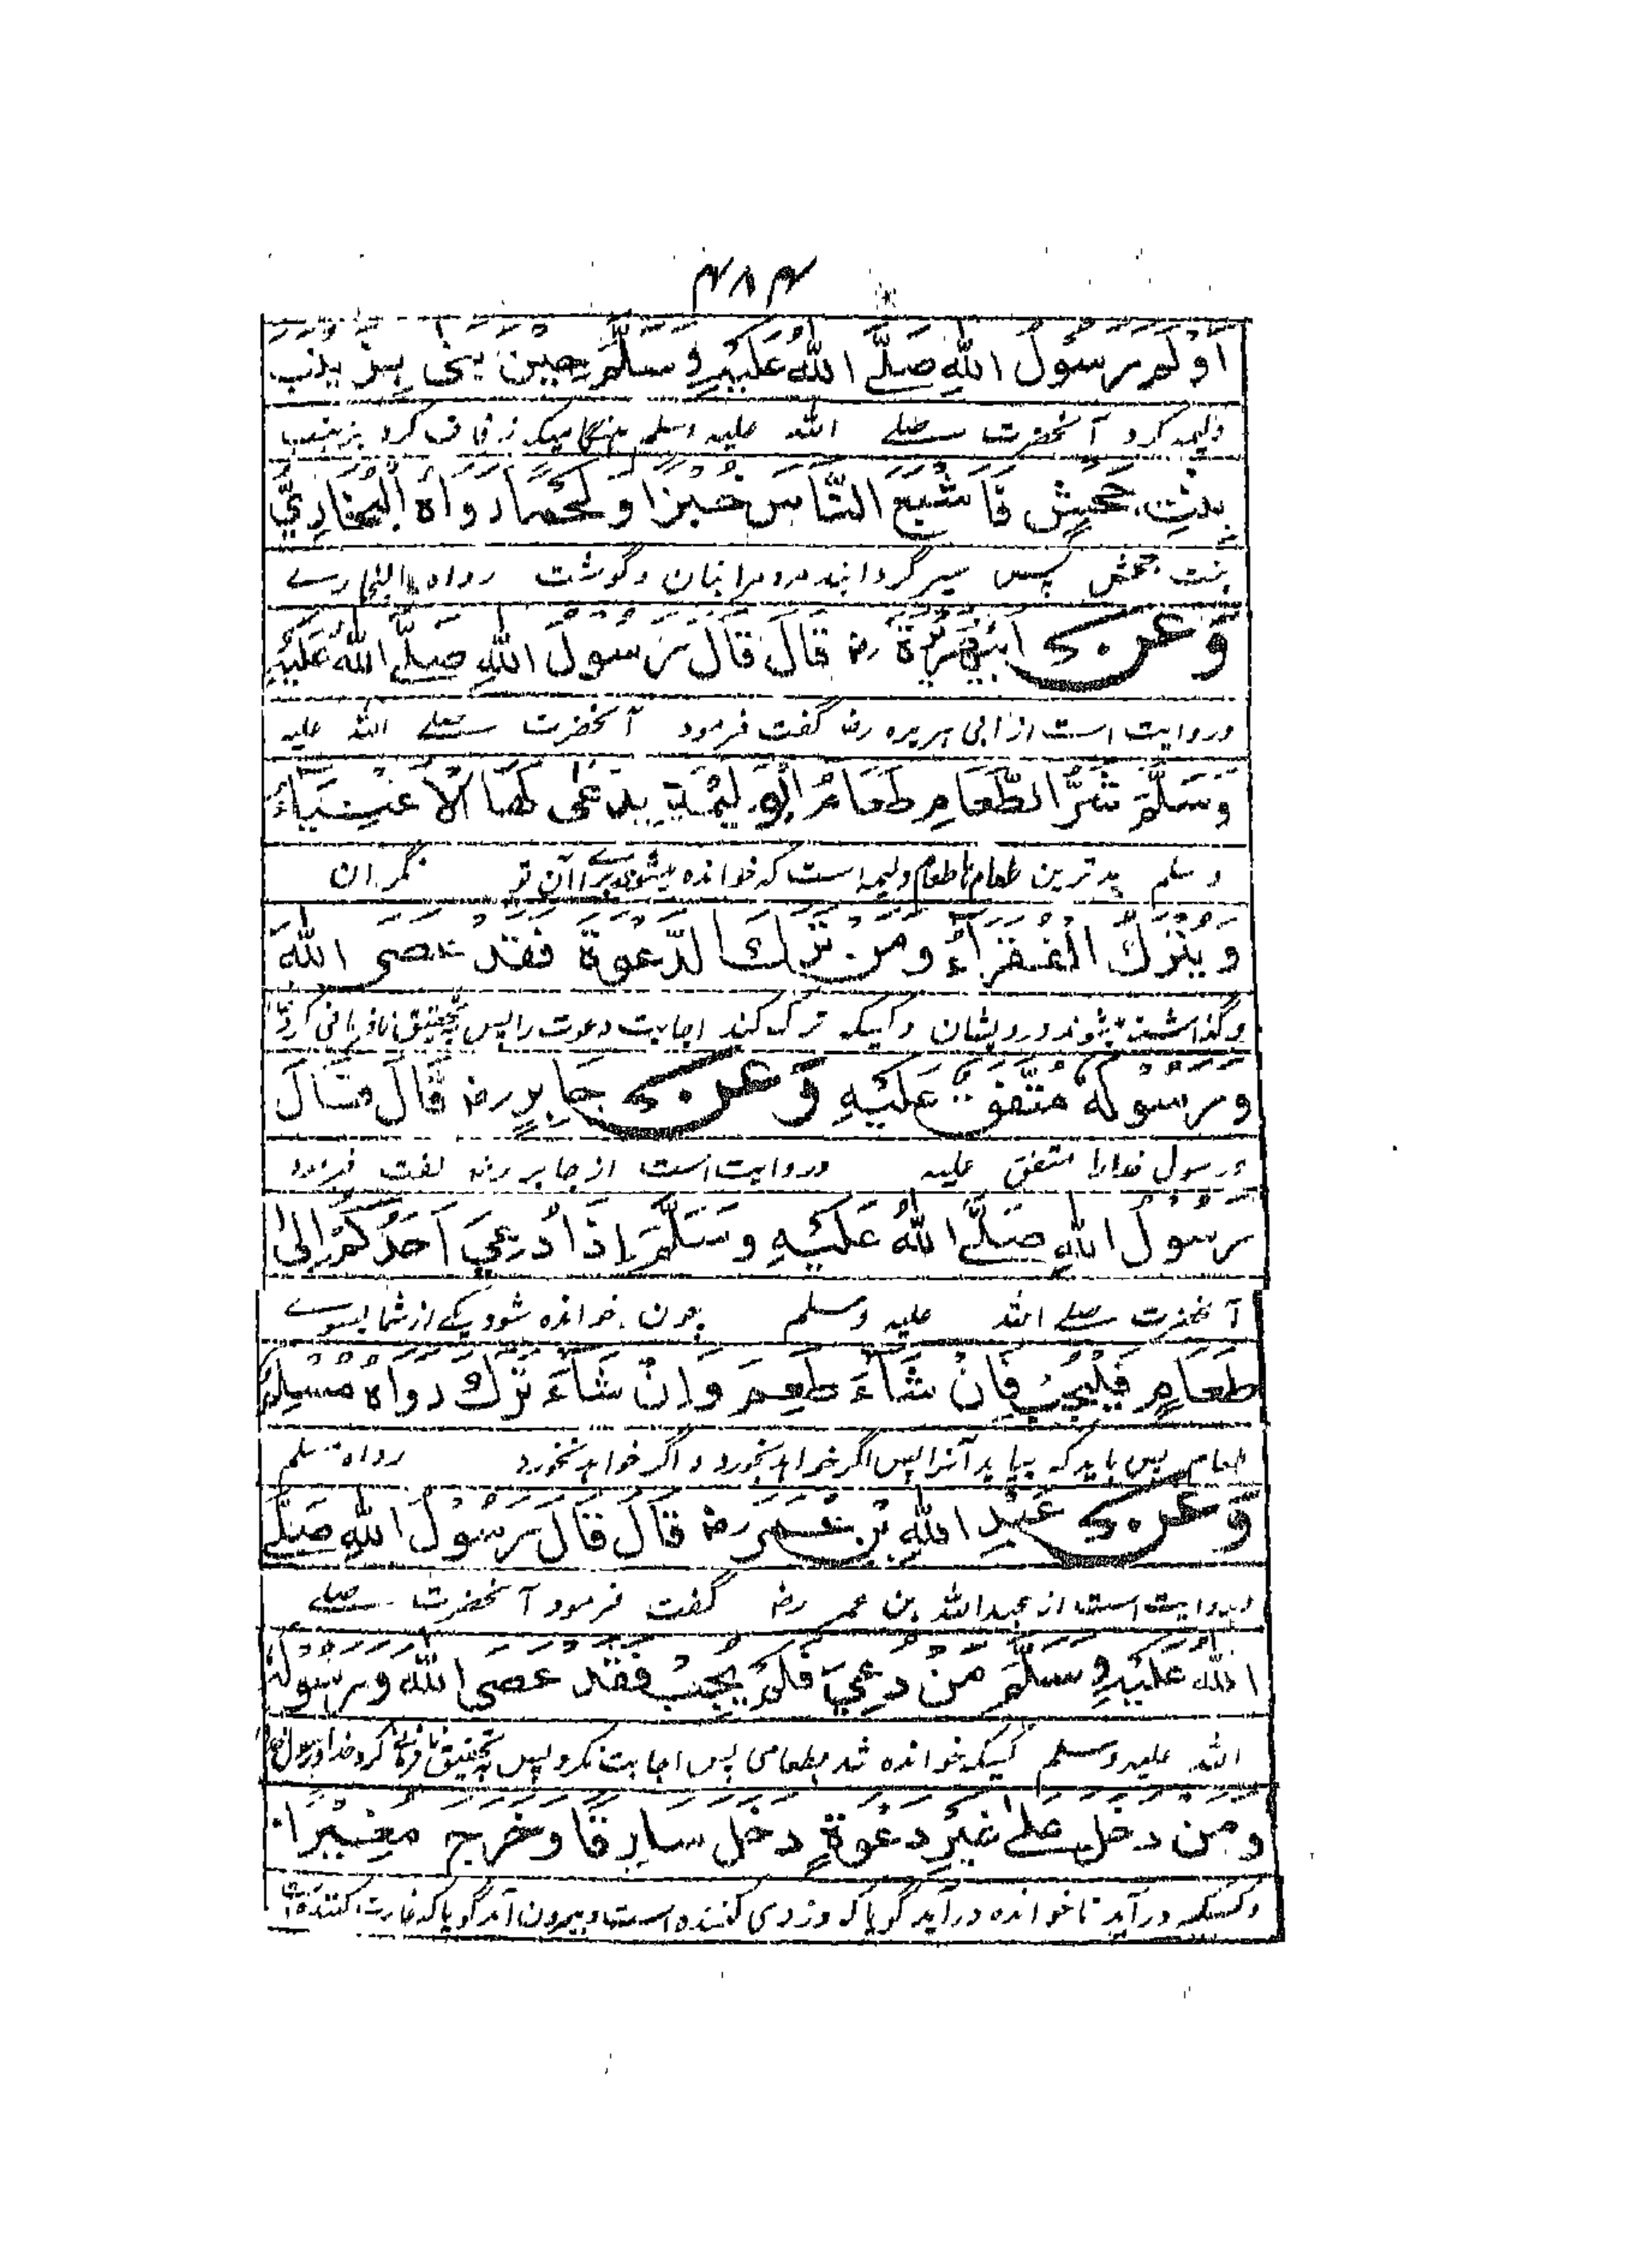 ۴۸۴
اَوْلَمَ رَسُوْلُ اللهِ صَلَّے اللهُ عَلَيْهِ وَسَلَّمَ حِيْنَ بَنٰى بِزَيْنَبَ
ولیمہ کرد آنحضرت صلے اللہ علیہ وسلم ہنگامیکہ زفاف کرد بزینب
بِنْتِ جَحْشٍ فَاَشْبَعَ النَّاسَ خُبْزًا وَلَحْمًا رَوَاهُ الْبُخَارِيُّ
بنت جحش پس سیر گردانید مردمرا بنان وگوشت رواه البخارے
وَعَنْ اَبِيْ هُرَيْرَةَ رض قَالَ قَالَ رَسُوْلُ اللهِ صَلَّے اللهُ عَلَيْهِ
وروایت است از ابی ہریرہ رض گفت فرمود آنحضرت صلے اللہ علیہ
وَسَلَّمَ شَرُّ الطَّعَامِ طَعَامُ الْوَلِيْمَةِ يُدْعٰى لَهَا الْاَغْنِيَاءُ
و سلم بدترین طعام طعام ولیمہ است کہ خوانده میشوند برا آن تو نگران
وَيُتْرَكُ الْفُقَرَاءُ وَمَنْ تَرَكَ الدَّعْوَةَ فَقَدْ عَصَى اللهَ
وگذاشتہ شوند درویشان وکسیکہ ترک کند اجابت دعوت را پس بتحقیق نافرمانی کرد
وَرَسُوْلَهٗ مُتَّفَقٌ عَلَيْهِ وَعَنْ جَابِرٍ رض قَالَ قَالَ
ورسول خدارا متفق علیہ وروایت است از جابر رض گفت فرمود
رَسُوْلُ اللهِ صَلَّے اللهُ عَلَيْهِ وَسَلَّمَ اِذَا دُعِيَ اَحَدُكُمْ اِلٰى
آنحضرت صلے اللہ علیہ وسلم چون خوانده شود یکے از شما بسوے
طَعَامٍ فَلْيُجِبْ فَاِنْ شَاءَ طَعِمَ وَاِنْ شَاءَ تَرَكَ رَوَاهُ مُسْلِمٌ
طعام پس باید کہ بیاید آنرا پس اگر خواہد بخورد و اگر خواہد نخورد رواه مسلم
وَعَنْ عَبْدِ اللهِ بْنِ عُمَرَ رض قَالَ قَالَ رَسُوْلُ اللهِ صَلَّے
وروایت است از عبداللہ بن عمر رض گفت فرمود آنحضرت صلے
اللهُ عَلَيْهِ وَسَلَّمَ مَنْ دُعِيَ فَلَمْ يُجِبْ فَقَدْ عَصَى اللهَ وَرَسُوْلَهٗ
اللہ علیہ وسلم کسیکہ خوانده شد بطعامی پس اجابت نکرد پس بتحقیق نافرمانی کرد خدا ورسول
وَمَنْ دَخَلَ عَلٰى غَيْرِ دَعْوَةٍ دَخَلَ سَارِقًا وَخَرَجَ مُغِيْرًا
وکسیکہ درآید ناخوانده درآید گویا کہ دزدی کننده است وبیرون آمد گویا کہ غارت کننده